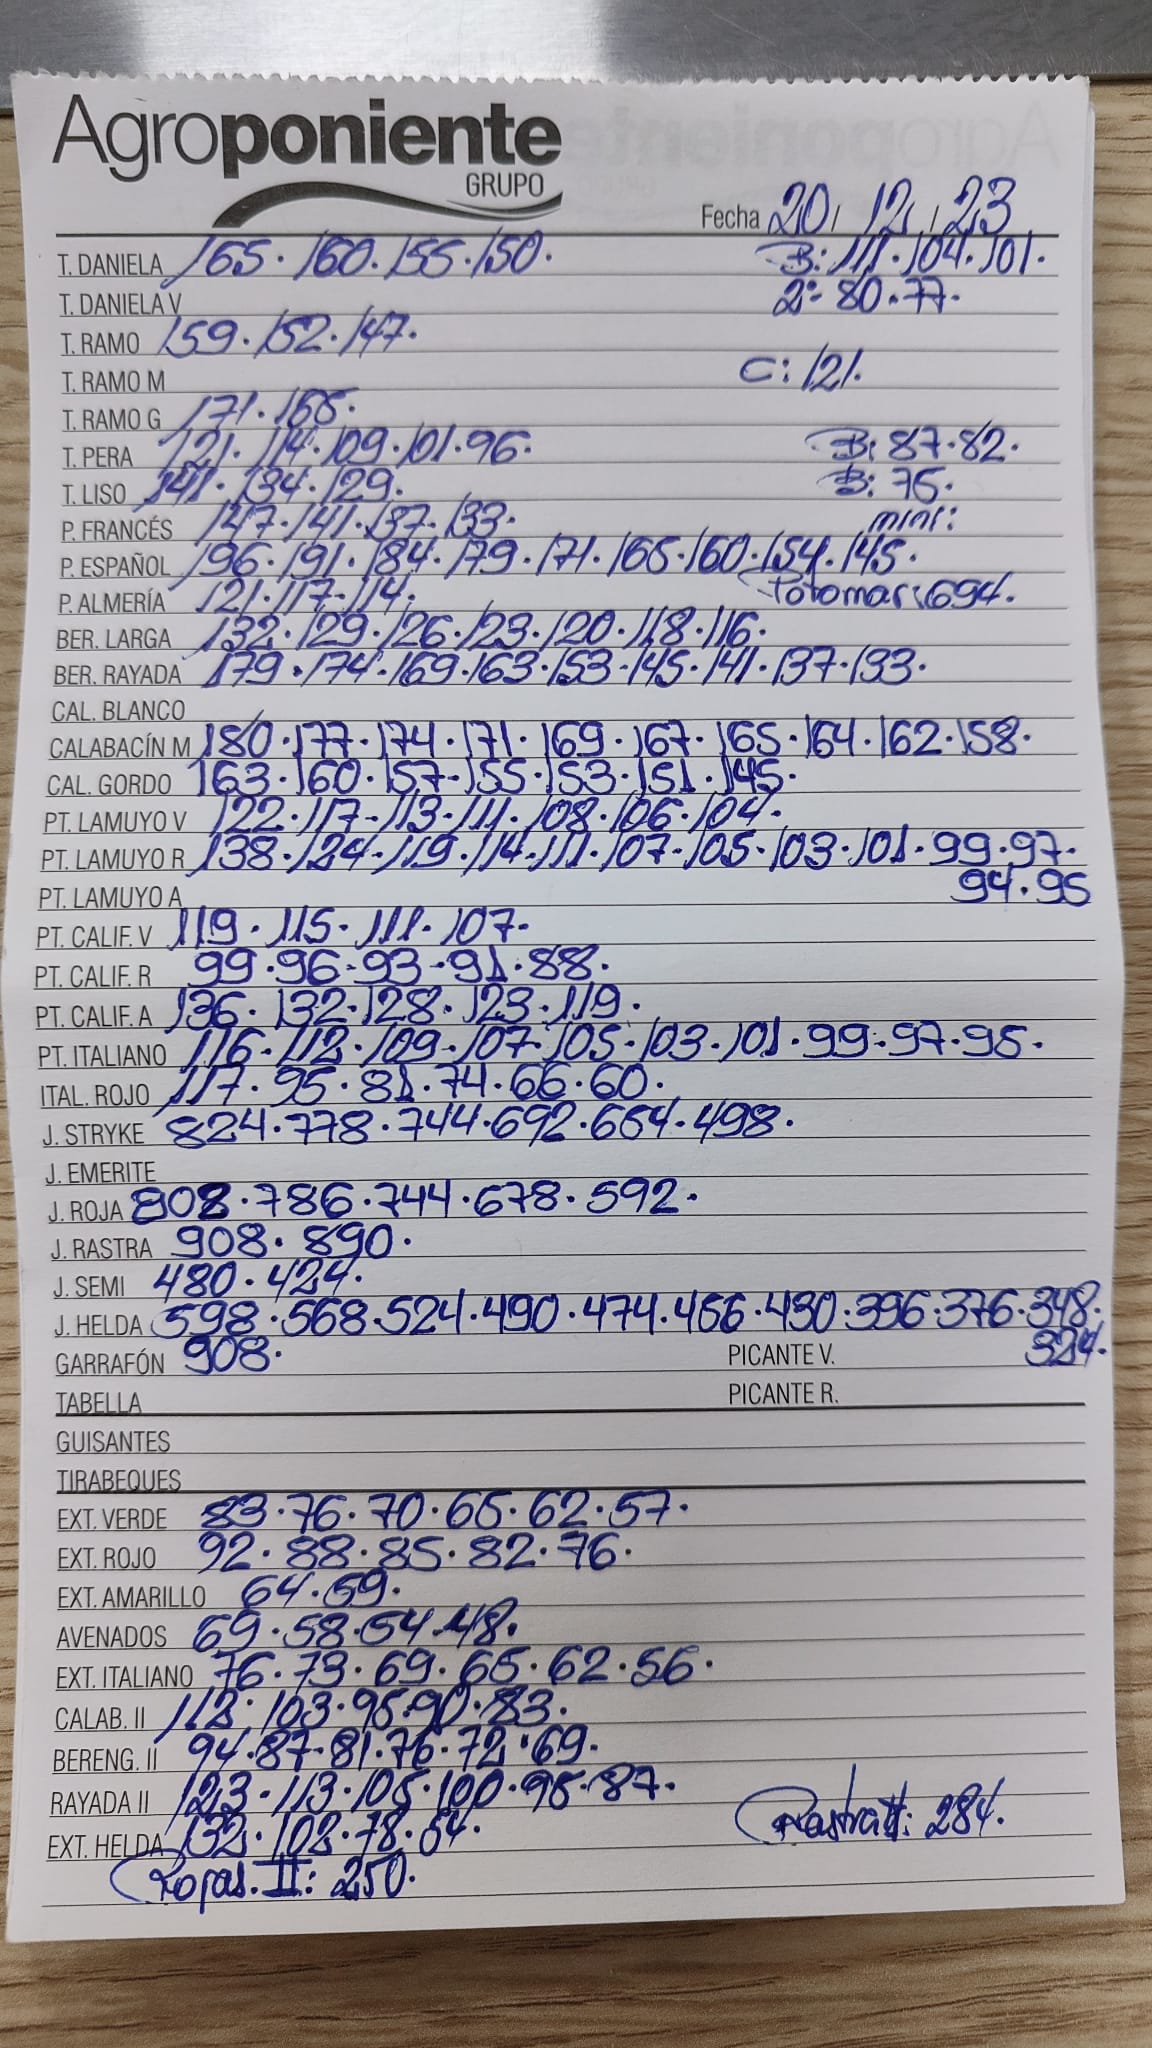 Agroponiente
GRUPO
Fecha 20 / 12 / 23
T. DANIELA 165 · 160 · 155 · 150 · B: 111 · 104 · 101 ·
T. DANIELA V 2ª 80 · 77 ·
T. RAMO 159 · 152 · 147 ·
T. RAMO M C: 121 ·
T. RAMO G 171 · 165 ·
T. PERA 121 · 114 · 109 · 101 · 96 · B: 87 · 82 ·
T. LISO 141 · 134 · 129 · B: 75 ·
P. FRANCÉS 147 · 141 · 137 · 133 · mini:
P. ESPAÑOL 196 · 191 · 184 · 179 · 171 · 165 · 160 · 154 · 145 ·
P. ALMERÍA 121 · 117 · 114 · Potomac: 694 ·
BER. LARGA 132 · 129 · 126 · 123 · 120 · 118 · 116 ·
BER. RAYADA 179 · 174 · 169 · 163 · 153 · 145 · 141 · 137 · 133 ·
CAL. BLANCO
CALABACÍN M 180 · 177 · 174 · 171 · 169 · 167 · 165 · 164 · 162 · 158 ·
CAL. GORDO 163 · 160 · 157 · 155 · 153 · 151 · 145 ·
PT. LAMUYO V 122 · 117 · 113 · 111 · 108 · 106 · 104 ·
PT. LAMUYO R 138 · 124 · 119 · 114 · 111 · 107 · 105 · 103 · 101 · 99 · 97 ·
PT. LAMUYO A 94 · 95
PT. CALIF. V 119 · 115 · 111 · 107 ·
PT. CALIF. R 99 · 96 · 93 · 91 · 88 ·
PT. CALIF. A 136 · 132 · 128 · 123 · 119 ·
PT. ITALIANO 116 · 112 · 109 · 107 · 105 · 103 · 101 · 99 · 97 · 95 ·
ITAL. ROJO 117 · 95 · 81 · 74 · 66 · 60 ·
J. STRYKE 824 · 778 · 744 · 692 · 654 · 498 ·
J. EMERITE
J. ROJA 908 · 786 · 744 · 678 · 592 ·
J. RASTRA 908 · 890 ·
J. SEMI 480 · 424 ·
J. HELDA 598 · 568 · 524 · 490 · 474 · 456 · 430 · 396 · 376 · 348 ·
GARRAFÓN 908 · PICANTE V. 324 ·
TABELLA PICANTE R.
GUISANTES
TIRABEQUES
EXT. VERDE 83 · 76 · 70 · 65 · 62 · 57 ·
EXT. ROJO 92 · 88 · 85 · 82 · 76 ·
EXT. AMARILLO 64 · 59 ·
AVENADOS 69 · 58 · 54 · 48 ·
EXT. ITALIANO 76 · 73 · 69 · 65 · 62 · 56 ·
CALAB. II 112 · 103 · 95 · 90 · 83 ·
BERENG. II 94 · 87 · 81 · 76 · 72 · 69 ·
RAYADA II 123 · 113 · 105 · 100 · 95 · 87 ·
EXT. HELDA 132 · 102 · 78 · 54 · Rastra II: 284 ·
Rojas. II: 250 ·